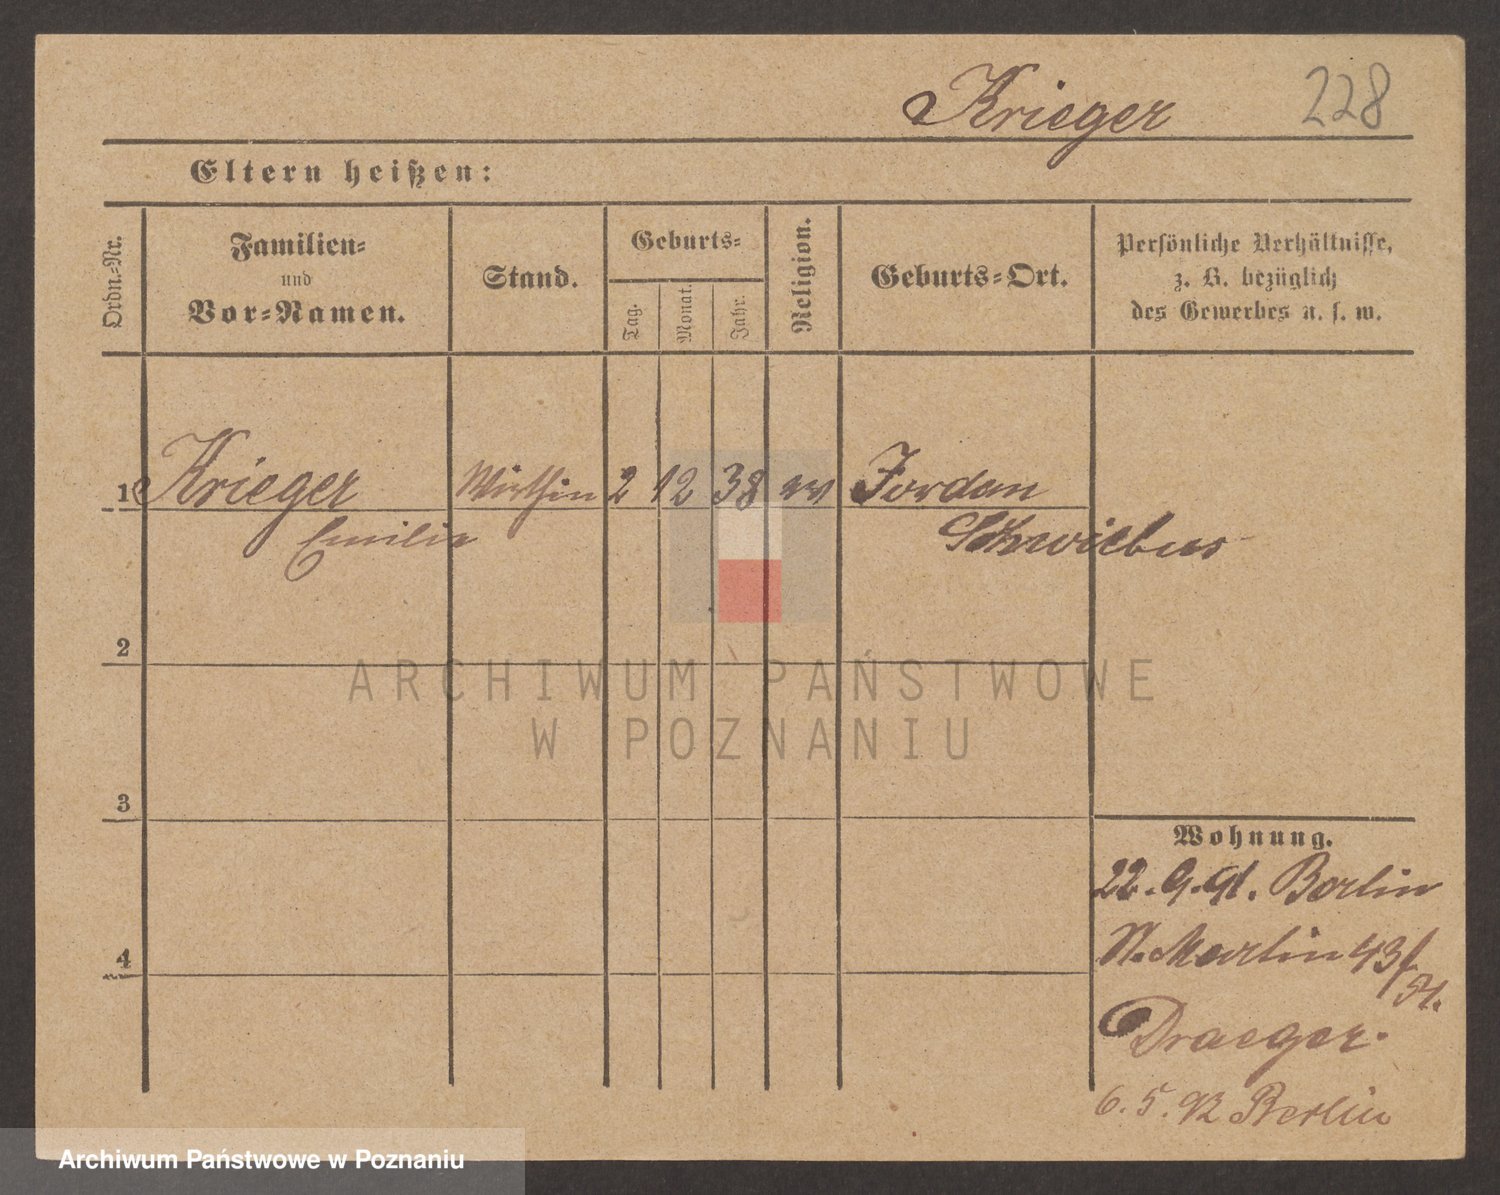 Krieger 228
Eltern heißen:
Ordn.-Nr.
Familien-
und
Vor-Namen.
Stand.
Geburts-
Tag.
Monat.
Jahr.
Religion.
Geburts-Ort.
Persönliche Verhältnisse,
z. B. bezüglich
des Gewerbes u. s. w.
1 Krieger Wirthin 2 12 38 ev Jordan
Emilie Schwiebus
2
3
4
Wohnung.
22. 9. 91. Berlin
St. Martin 43/
Draeger.
6. 5. 92 Berlin
ARCHIWUM PAŃSTWOWE
W POZNANIU
Archiwum Państwowe w Poznaniu